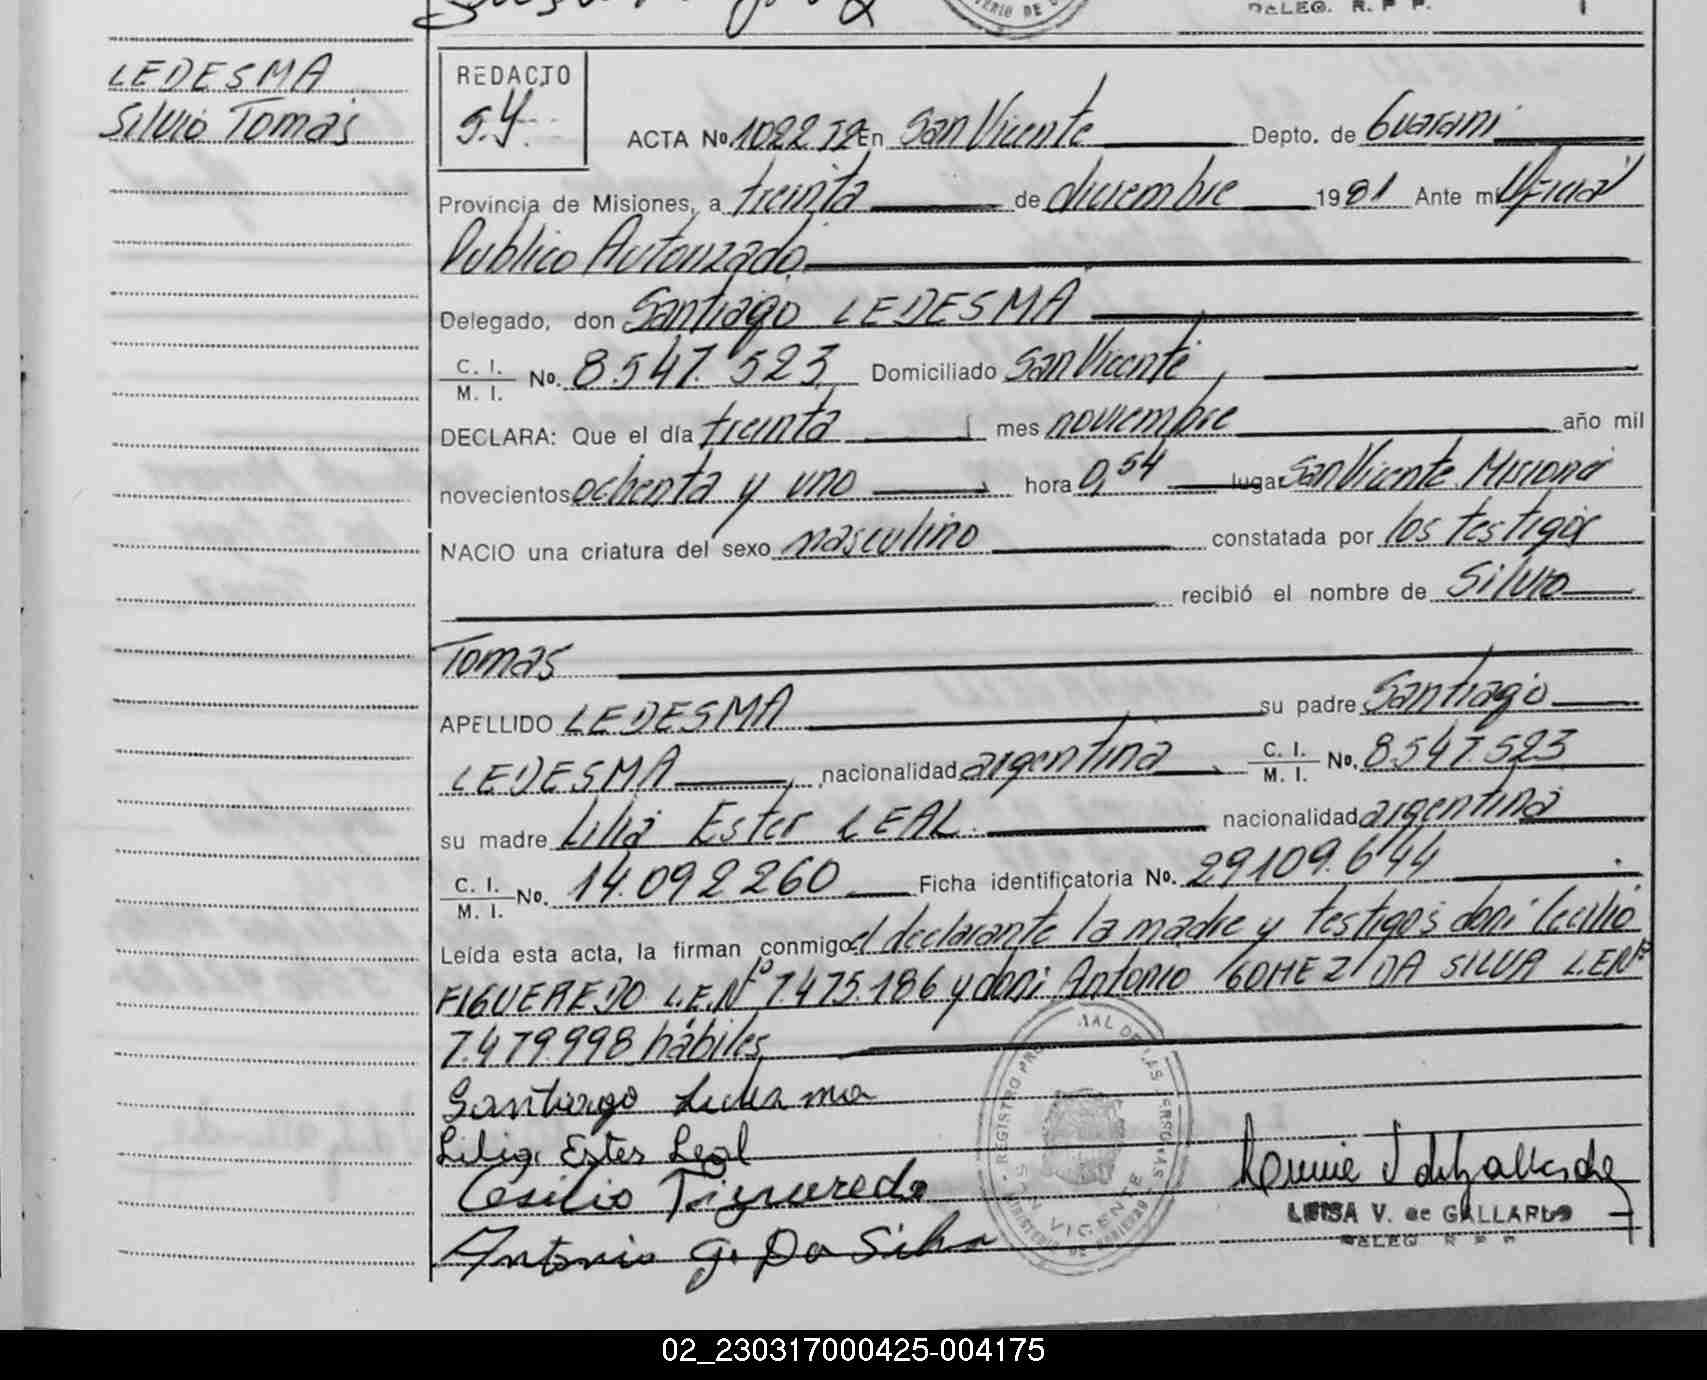 DELEG. R. P. P.
LEDESMA
Silvio Tomas
REDACTO
S.Y.
ACTA No. 1022 T2 En San Vicente Depto. de Guarani
Provincia de Misiones, a treinta de diciembre 1981 Ante mi Oficial
Publico Autorizado
Delegado, don Santiago LEDESMA
C. I.
M. I. No. 8.547.523 Domiciliado San Vicente,
DECLARA: Que el día treinta mes noviembre año mil
novecientos ochenta y uno hora 0,54 lugar San Vicente Misiones
NACIO una criatura del sexo masculino constatada por los testigos
recibió el nombre de Silvio
Tomas
APELLIDO LEDESMA su padre Santiago
LEDESMA, nacionalidad argentina C. I.
M. I. No. 8.547.523
su madre Lilia Ester LEAL nacionalidad argentina
C. I.
M. I. No. 14.092.260 Ficha identificatoria No. 29109.644
Leída esta acta, la firman conmigo el declarante la madre y testigos don: Cecilio
FIGUEREDO L.E.Nº 7.475.186 y don: Antonio GOMEZ DA SILVA L.E.Nº
7.479.998 hábiles
Santiago Ledesma
Lilia Ester Leal
Cesilio Figueredo
Antonio G. Da Silva
REGISTRO PROVINCIAL DE LAS PERSONAS
SAN VICENTE
MINISTERIO DE GOBIERNO
LUISA V. de GALLARDO
DELEG. R. P. P.
02_230317000425-004175